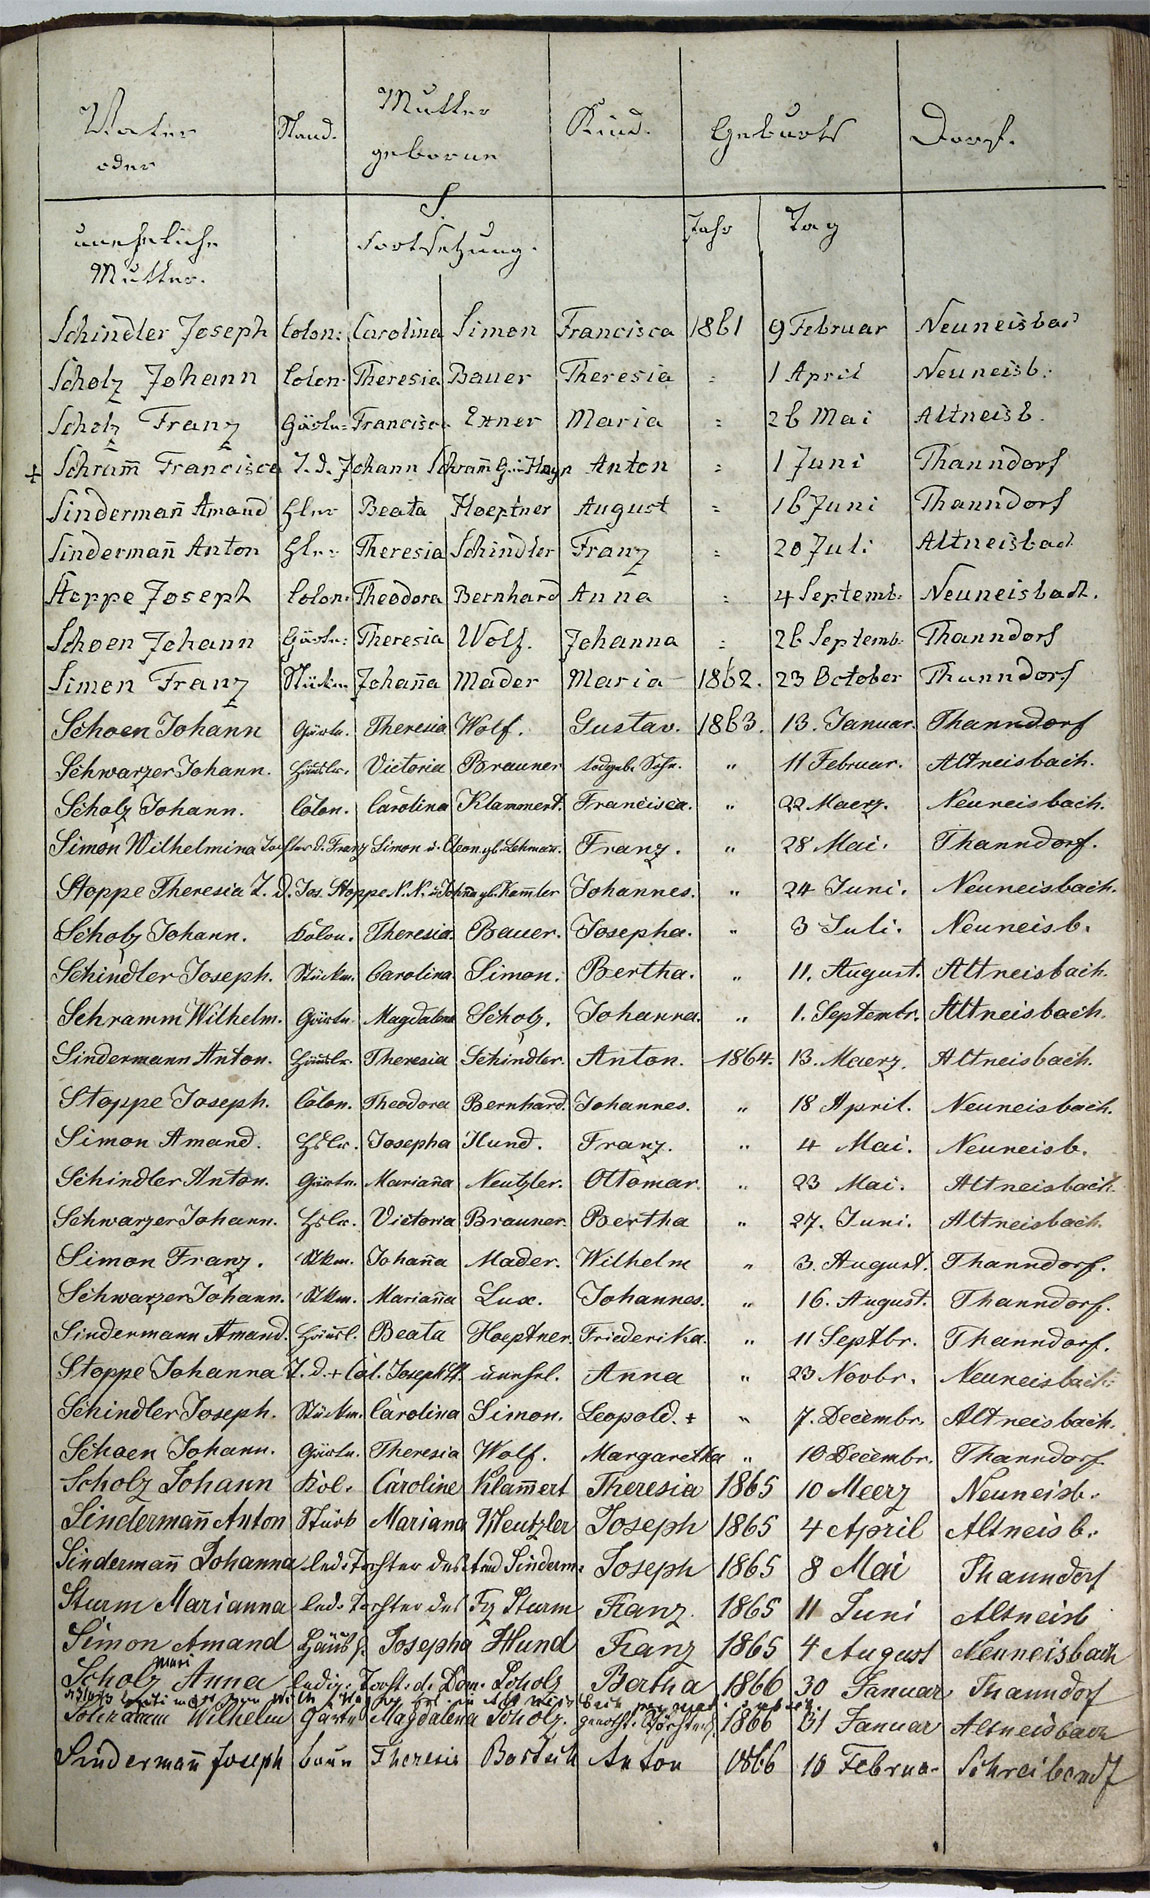 Vater Stand. Mutter Kind. Geburts Dorf.
oder geborne
S.
uneheliche Fortsetzung. Jahr Tag
Mutter.
Schindler Joseph Colon: Carolina Simon Francisca 1861 9 Februar Neuneisbach
Scholz Johann Colon: Theresia Bauer Theresia = 1 April Neuneisb:
Scholz Franz Gärtn= Francisca Exner Maria = 26 Mai Altneisb.
+ Schram̄ Francisca T. d. Johann Schram̄ Anton = 1 Juni Thanndorf
Sinderman̄ Amand Hlr Beata Hoeptner August = 16 Juni Thanndorf
Sinderman̄ Anton Hlr: Theresia Schindler Franz = 20 Juli Altneisbach
Stoppe Joseph Colon: Theodora Bernhard Anna = 4 Septemb: Neuneisbach.
Schoen Johann Gärtn: Theresia Wolf. Johanna = 26 Septemb: Thanndorf
Simon Franz Stückm Johan̄a Mader Maria 1862. 23 October Thanndorf
Schoen Johann Gärtn. Theresia Wolf. Gustav. 1863. 13. Januar. Thanndorf
Schwarzer Johann. Häuslr. Victoria Brauner todgeb. Sohn. " 11 Februar. Altneisbach.
Scholz Johann. Colon. Carolina Klamment. Francisca. " 22 Maerz. Neuneisbach.
Simon Wilhelmina Tochter d. Franz Simon u. Cleon. gb. Lehman. Franz. " 28 Mai. Thanndorf.
Stoppe Theresia T. d. Jos. Stoppe N. N. u Johna gb. Kammler Johannes. " 24 Juni. Neuneisbach.
Scholz Johann. Colon. Theresia. Bauer. Josepha. " 3 Juli. Neuneisb.
Schindler Joseph. Stückm. Carolina Simon. Bertha. " 11. August. Altneisbach.
Schramm Wilhelm. Gärtn. Magdalena Scholz. Johanna. " 1. Septembr. Altneisbach.
Sindermann Anton. Häuslr. Theresia Schindler. Anton. 1864. 13. Maerz. Altneisbach.
Stoppe Joseph. Colon. Theodora Bernhard. Johannes. " 18 April. Neuneisbach.
Simon Amand. Hslr. Josepha Hund. Franz. " 4 Mai. Neuneisb.
Schindler Anton. Gärtn. Marian̄a Neutzler. Ottomar. " 23 Mai. Altneisbach.
Schwarzer Johann. Hslr. Victoria Brauner. Bertha " 27. Juni. Altneisbach.
Simon Franz. Stkm. Johan̄a Mader. Wilhelm " 3. August. Thanndorf.
Schwarzer Johann. Stkm. Marian̄a Lux. Johannes. " 16. August. Thanndorf.
Sindermann Amand. Häusl. Beata Hoeptner. Friederika. " 11 Septbr. Thanndorf.
Stoppe Johanna T. d. + Col. Joseph St. unehl. Anna " 23 Novbr. Neuneisbach.
Schindler Joseph. Stückm. Carolina Simon. Leopold. + " 7. Decembr. Altneisbach.
Schoen Johann. Gärtn. Theresia Wolf. Margaretha " 10 Decembr. Thanndorf
Scholz Johann Kol. Caroline Klam̄ert Theresia 1865 10 Meerz Neuneisb.
Sinderman̄ Anton Stück Mariana Neutzler Joseph 1865 4 April Altneisb.
Sinderman̄ Johanna led. Tochter des Sinderm. Joseph 1865 8 Mai Thanndorf
Sturm Marianna led. Tochter des Fz Sturm Franz 1865 11 Juni Altneisb
Simon Amand Häusl. Josepha Hund Franz 1865 4 August Neuneisbach
Mari
Scholz Anna ledig. Tocht. d. Dom. Scholz Bertha 1866 30 Januar Thanndorf
Schramm Wilhelm Gärtn Magdalena Scholz. 1866 31 Januar Altneisbach
Sinderman̄ Joseph baur Theresia Bartsch Anton 1866 10 Februar Schreibendf